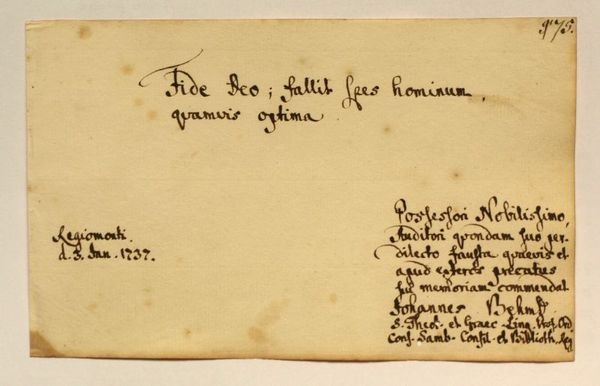 p. 75.
Fide Deo; fallit spes hominum,
quamvis optima.
Regiomonti.
d. 3. Jan. 1737.
Possessori Nobilissimo,
Auditori quondam suo per-
dilecto fausta quaevis et
apud exteros precatus
suj memoriam commendat
Johannes Behm
S. Theol. et Graec. Ling. Prof. Ord
Cons. Samb. Consil. et Biblioth. Reg